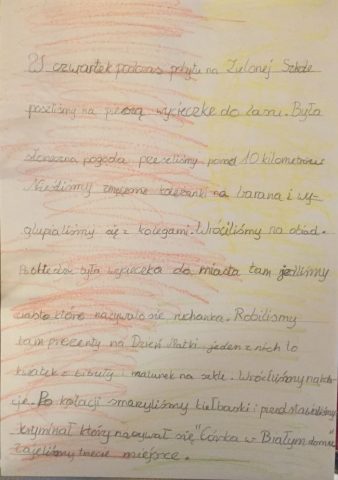 W czwartek podczas pobytu na Zielonej Szkole
poszliśmy na pieszą wycieczkę do Łasni. Była
słoneczna pogoda przeszliśmy ponad 10 kilometrów
Nieśliśmy zmęczone koleżanki na barana i wy-
głupialiśmy się z kolegami. Wróciliśmy na obiad.
Po obiedzie była wycieczka do miasta tam jedliśmy
ciasto które nazywało się ruchanka. Robiliśmy
tam prezenty na Dzień Matki jeden z nich to
kwiatek z bibuły i malunek na szkle. Wróciliśmy na kola-
cje. Po kolacji smażyliśmy kiełbaski i przedstawialiśmy
kryminał który nazywał się "Córka w Białym domu"
Zajeliśmy trzecie miejsce.